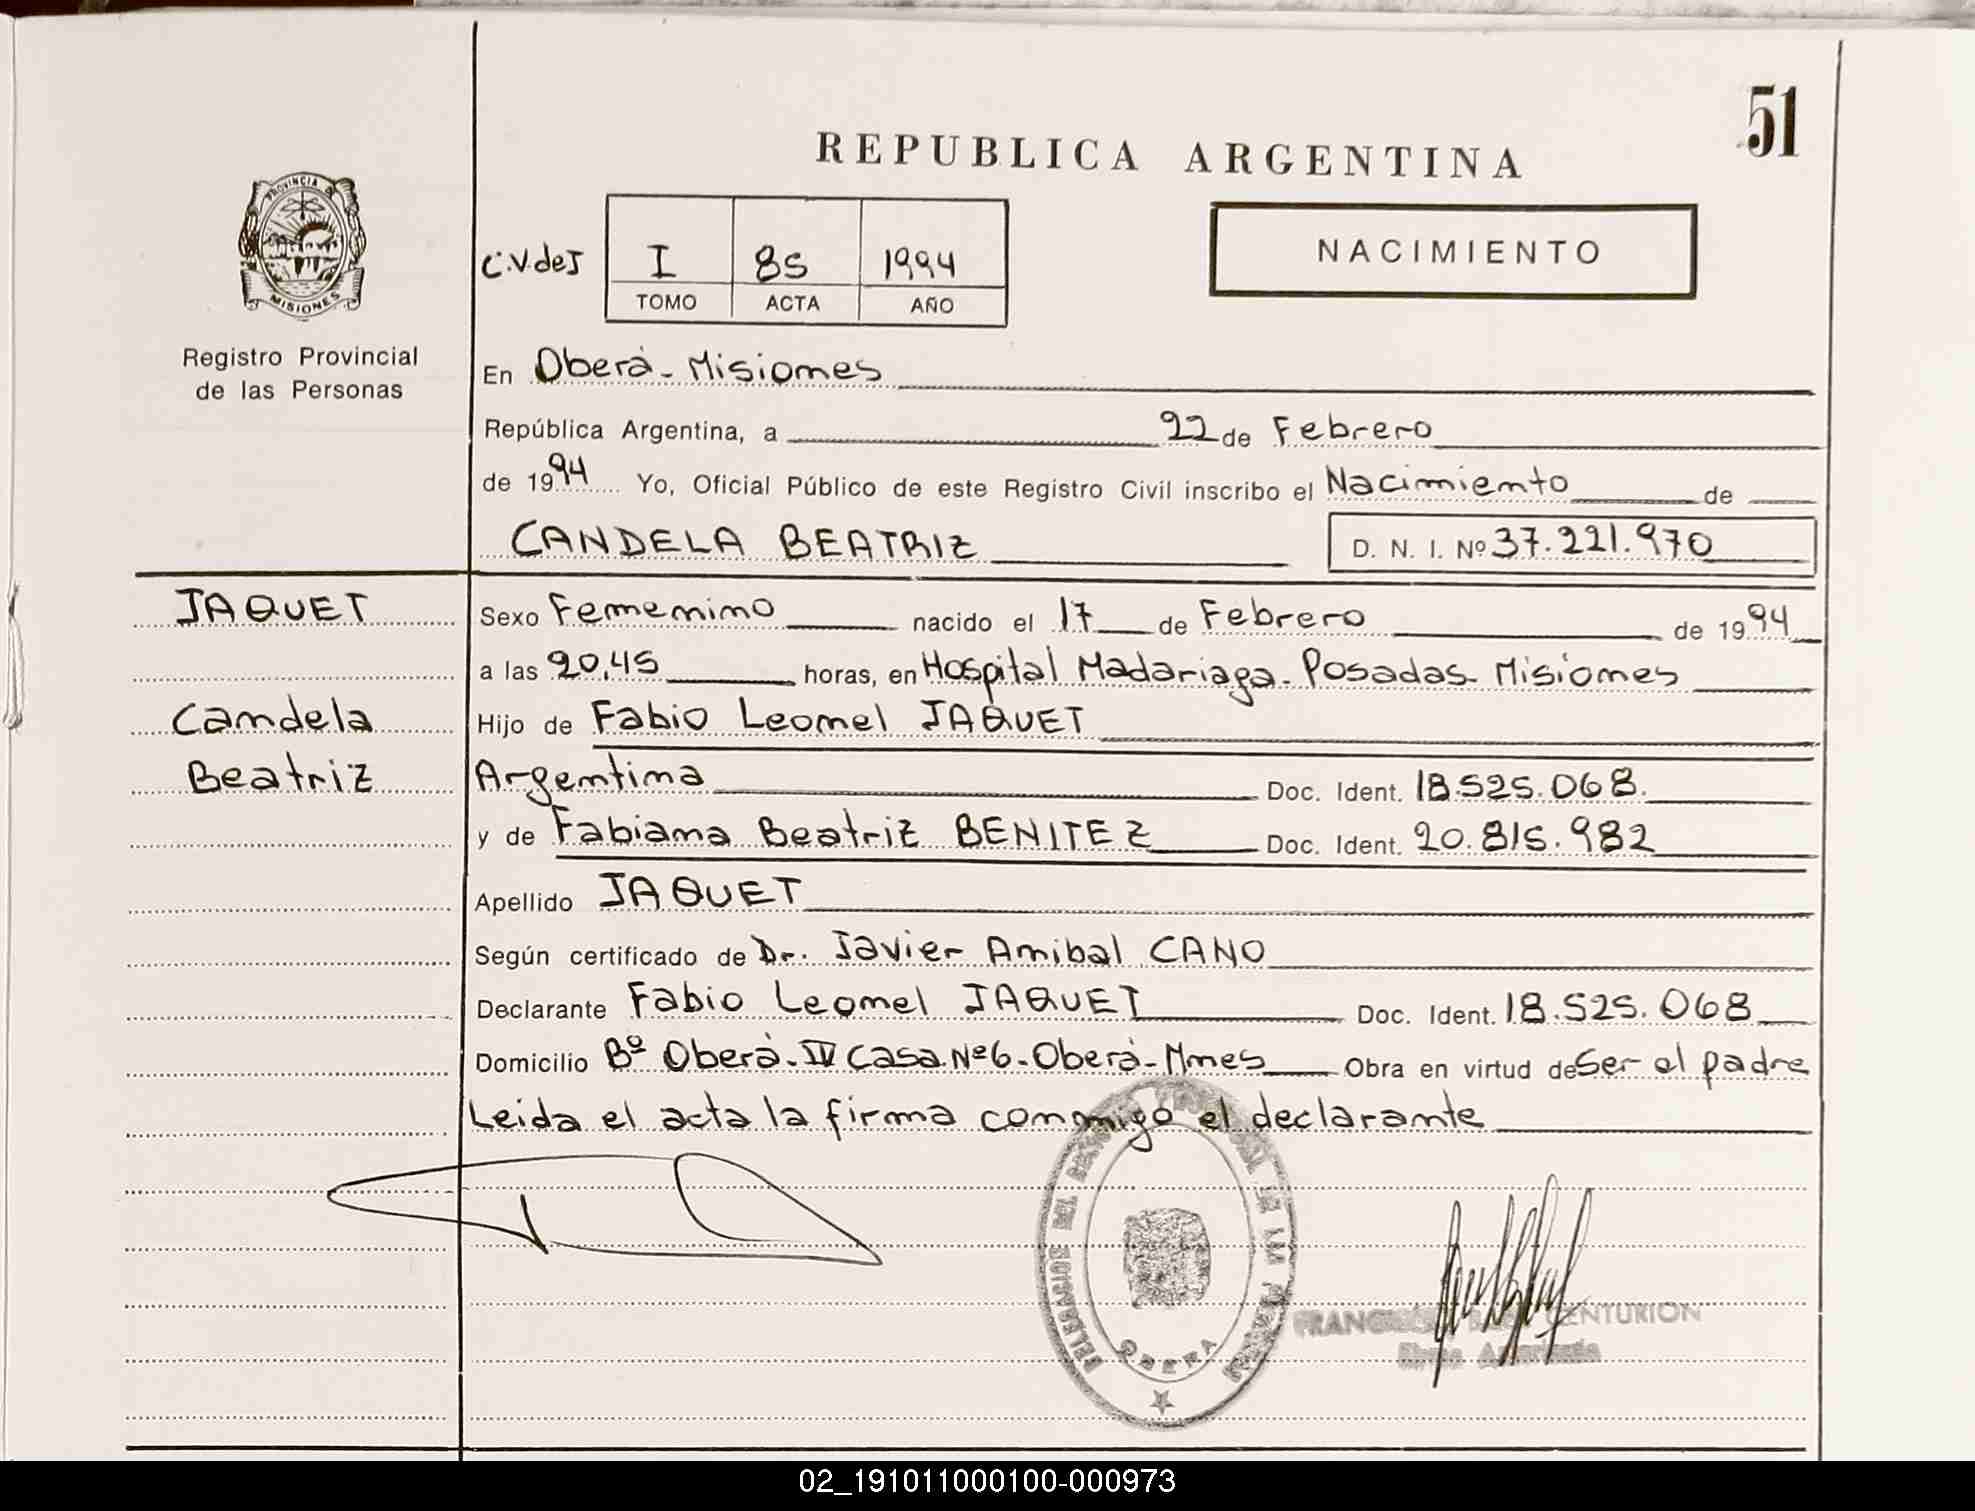 51
REPUBLICA ARGENTINA
PROVINCIA DE
MISIONES
Registro Provincial
de las Personas
C.V.deJ
I 85 1994
TOMO ACTA AÑO
NACIMIENTO
En Oberá - Misiones
República Argentina, a 22 de Febrero
de 1994 Yo, Oficial Público de este Registro Civil inscribo el Nacimiento de
CANDELA BEATRIZ D. N. I. Nº 37.221.970
JAQUET
Candela
Beatriz
Sexo Femenino nacido el 17 de Febrero de 1994
a las 20,45 horas, en Hospital Madariaga - Posadas - Misiones
Hijo de Fabio Leonel JAQUET
Argentina Doc. Ident. 18.525.068.
y de Fabiana Beatriz BENITEZ Doc. Ident. 20.815.982
Apellido JAQUET
Según certificado de Dr. Javier Anibal CANO
Declarante Fabio Leonel JAQUET Doc. Ident. 18.525.068
Domicilio Bº Oberá - IV Casa Nº 6 - Oberá - Mnes Obra en virtud de Ser el padre
Leida el acta la firma conmigo el declarante
OBERA
CENTURION
02_191011000100-000973